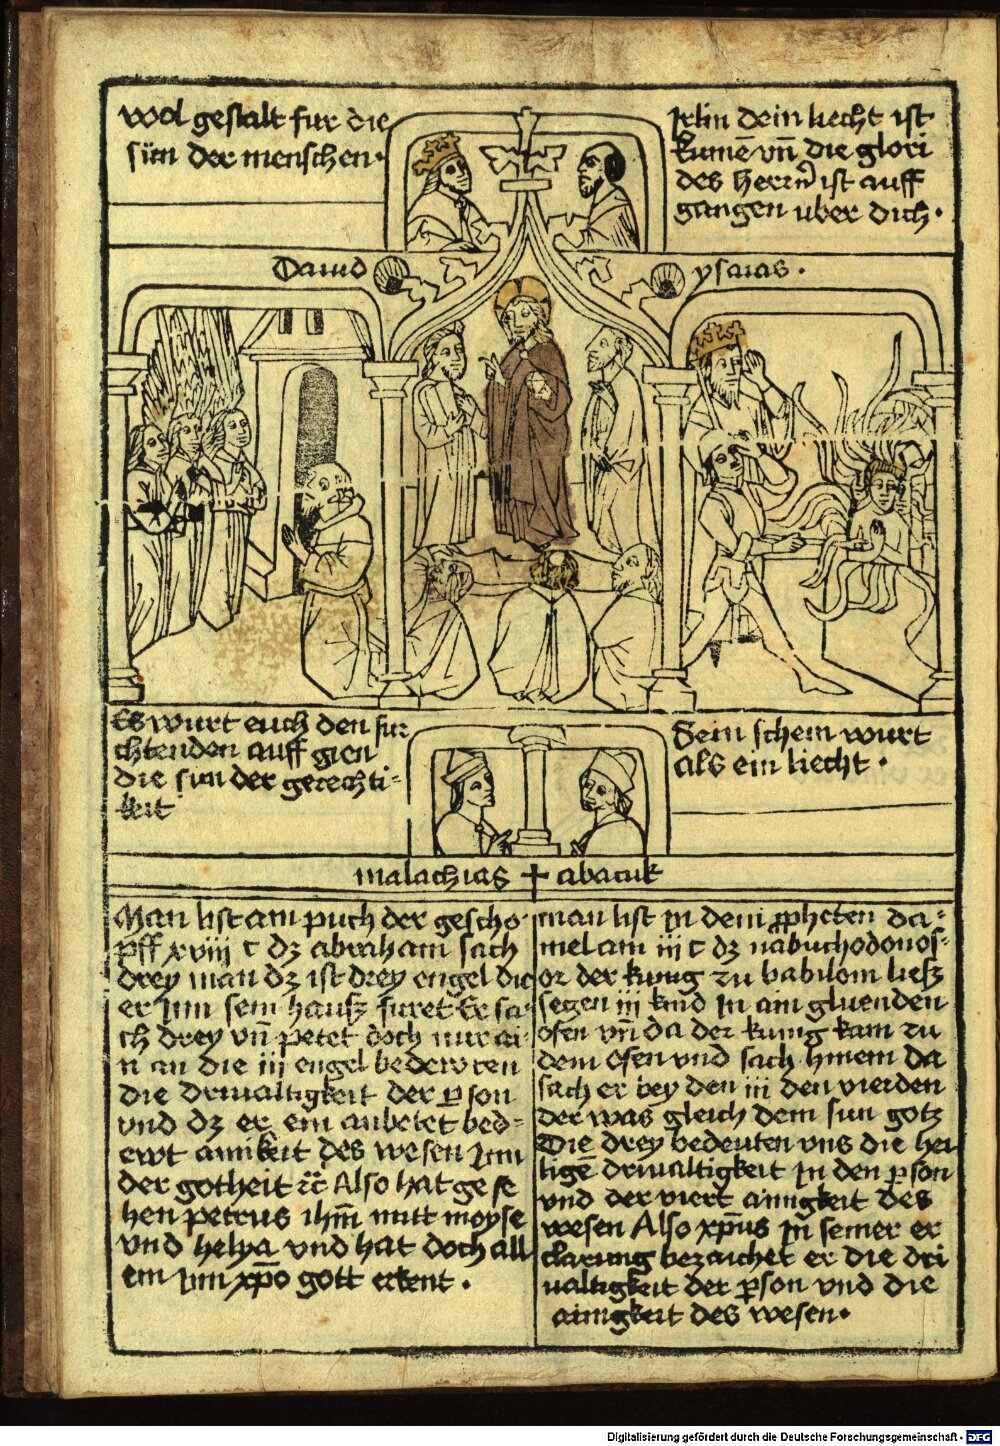 wol gestalt fur die
sün der menschen·
Jrlm dein liecht ist
kumē vn̄ die glori
des herrn̄ ist auff
gangen uber dich·
Dauid
ysaias·
Es wurt euch den fur
chtenden auff gien
die sun der gerechti-
keit
Sein schein wurt
als ein liecht·
malachias † abacuk
Man list am puch der gescho-
pff xviij c dz abraham sach
drey man dz ist drey engel die
er Jnn sein hausz furet Er sa-
ch drey vn̄ petet doch nur ai-
n an die iij engel bedewten
die driualtigkeit der p̄son
vnd dz er ein anbetet bed-
ewt ainikeit des wesen Jnn
der gotheit ⁊c̄ Also hat gese
hen petrus ihm̄ mitt moyse
vnd helya vnd hat doch all
ein Jnn xp̄o gott erkent·
man list Jn dem p̄pheten da-
niel am iij c dz nabuchodonos-
or der kung zu babilom liesz
segen iij kind Jn ain gluenden
ofen vn̄ da der kunig kam zu
dem ofen vnd sach hinein da
sach er bey den iij den vierden
der was gleich dem sun gotz
Die drey bedeuten vns die hei
ligē driualtigkeit Jn den p̄son
vnd der viert ainigkeit des
wesen Also xp̄us Jn seiner er
clarung bezaichet er die dri
ualtigkeit der p̄son vnd die
ainigkeit des wesen·
Digitalisierung gefördert durch die Deutsche Forschungsgemeinschaft - DFG